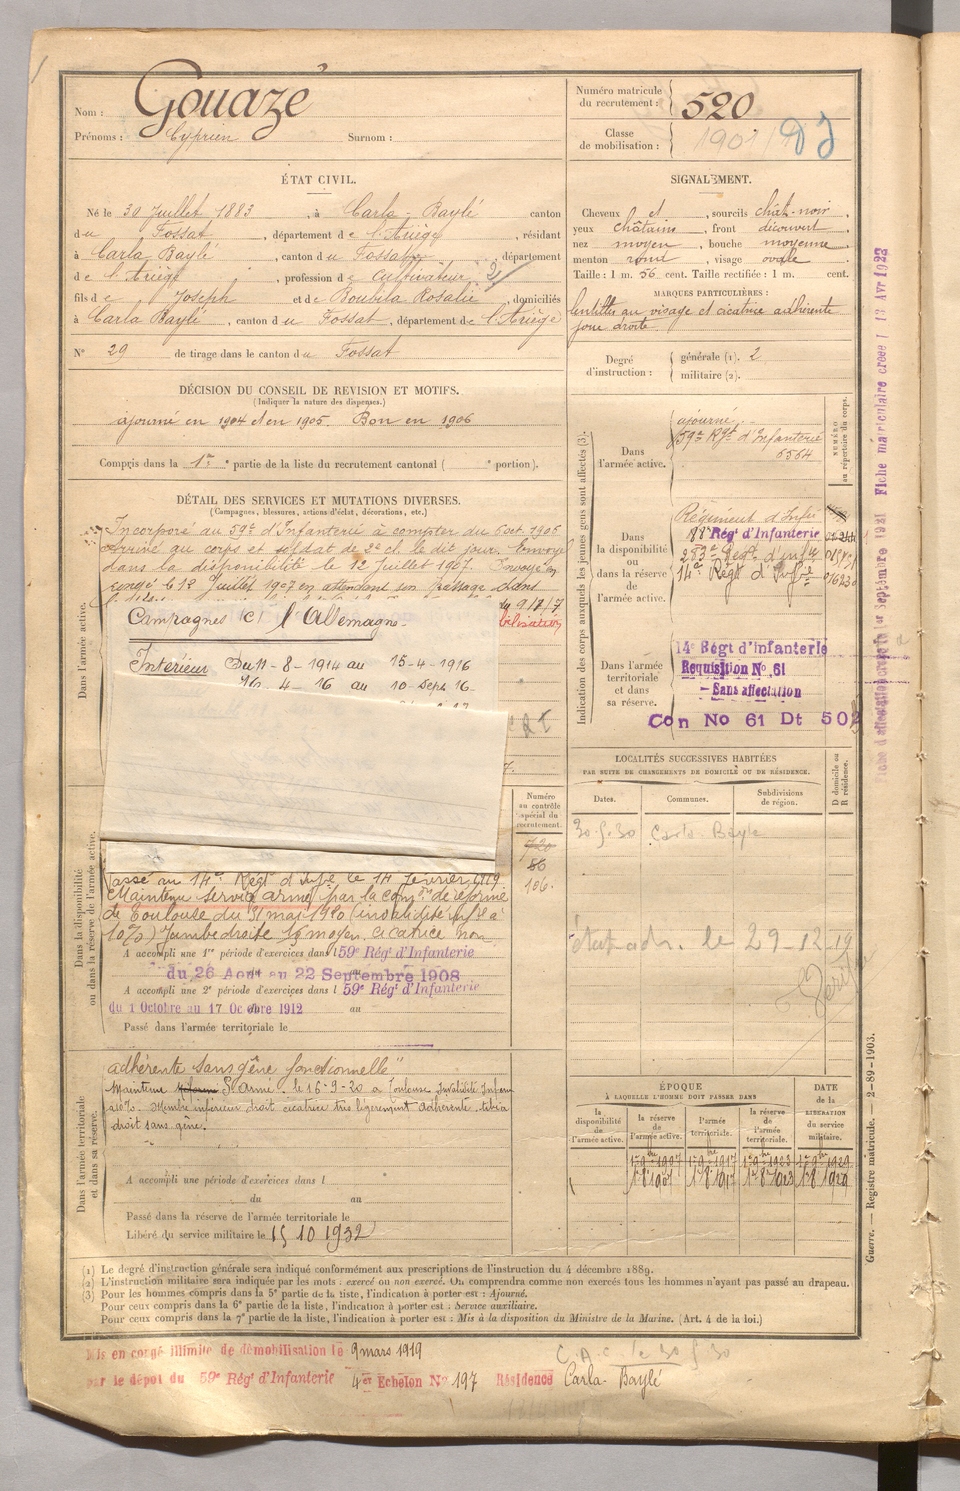 Nom : Gouazé
Prénoms : Cyprien Surnom :
Numéro matricule du recrutement : 520
Classe de mobilisation : 1901
ÉTAT CIVIL.
Né le 30 Juillet 1883, à Carla-Baylé canton
du Fossat, département de l'Ariège, résidant
à Carla Baylé, canton du Fossat, département
de l'Ariège, profession de cultivateur 2/
fils de Joseph et de Boubila Rosalie, domiciliés
à Carla Baylé, canton du Fossat, département de l'Ariège
N° 29 de tirage dans le canton du Fossat
SIGNALEMENT.
Cheveux et, sourcils chât-noir,
yeux châtains, front découvert,
nez moyen, bouche moyenne,
menton rond, visage ovale.
Taille : 1 m. 56 cent. Taille rectifiée : 1 m. cent.
MARQUES PARTICULIÈRES :
lentilles au visage et cicatrice adhérente
joue droite.
Degré d'instruction : générale (1). 2
militaire (2).
DÉCISION DU CONSEIL DE REVISION ET MOTIFS.
(Indiquer la nature des dispenses.)
ajourné en 1904 et en 1905. Bon en 1906
Compris dans la 1re partie de la liste du recrutement cantonal ( e portion).
DÉTAIL DES SERVICES ET MUTATIONS DIVERSES.
(Campagnes, blessures, actions d'éclat, décorations, etc.)
Dans l'armée active.
Incorporé au 59e d'Infanterie à compter du 6 oct. 1906
arrivé au corps et soldat de 2e cl. le dit jour. Envoyé
dans la disponibilité le 12 Juillet 1907. Envoyé en
congé le 12 Juillet 1907 en attendant son passage dans
Campagnes ct l'Allemagne.
Intérieur Du 11-8-1914 au 15-4-1916
16-4-16 au 10-Sept 16-
Indication des corps auxquels les jeunes gens sont affectés (3).
NUMÉRO au répertoire du corps.
Dans l'armée active.
ajourné
59e Rgt d'Infanterie
6564
Dans la disponibilité ou dans la réserve de l'armée active.
Régiment d'Infie
Régt d'Infanterie
283e Regt d'infie
14e Régt d'Infie
Dans l'armée territoriale et dans sa réserve.
14e Régt d'Infanterie
Requisition No 61
- Sans affectation
Con No 61 Dt 502
LOCALITÉS SUCCESSIVES HABITÉES
PAR SUITE DE CHANGEMENTS DE DOMICILE OU DE RÉSIDENCE.
Dates. Communes. Subdivisions de région. D domicile ou R résidence.
30-5-30 Carla-Bayle
le 29-12-19
Numéro au contrôle spécial du recrutement.
86
106.
Dans la disponibilité ou dans la réserve de l'armée active.
Passé au 14e Régt d'Infie le 14 février 1919.
Maintenu service armé par la comon de réforme
de Toulouse du 31 mai 1920 (invalidité infre à
10%) Jambe droite 1/3 moyen, cicatrice non
A accompli une 1re période d'exercices dans l 59e Rég' d'Infanterie
du 26 Aout au 22 Septembre 1908
A accompli une 2e période d'exercices dans l 59e Rég' d'Infanterie
du 1 Octobre au 17 Octobre 1912 au
Passé dans l'armée territoriale le
Dans l'armée territoriale et dans sa réserve.
adhérente sans gêne fonctionnelle"
Maintenu S. armé. le 16-9-20 à Toulouse Invalidité Infeur
à 10%. Membre inférieur droit cicatrice très légèrement adhérente tibia
droit sans gêne.
A accompli une période d'exercices dans l
du au
Passé dans la réserve de l'armée territoriale le
Libéré du service militaire le 15 10 1932
ÉPOQUE
À LAQUELLE L'HOMME DOIT PASSER DANS
DATE de la LIBÉRATION du service militaire.
la disponibilité de l'armée active. la réserve de l'armée active. l'armée territoriale. la réserve de l'armée territoriale.
1er 8 1907 1er 8 1917 1er 8 1923 1er 8 1929
(1) Le degré d'instruction générale sera indiqué conformément aux prescriptions de l'instruction du 4 décembre 1889.
(2) L'instruction militaire sera indiquée par les mots : exercé ou non exercé. On comprendra comme non exercés tous les hommes n'ayant pas passé au drapeau.
(3) Pour les hommes compris dans la 5e partie de la liste, l'indication à porter est : Ajourné.
Pour ceux compris dans la 6e partie de la liste, l'indication à porter est : Service auxiliaire.
Pour ceux compris dans la 7e partie de la liste, l'indication à porter est : Mis à la disposition du Ministre de la Marine. (Art. 4 de la loi.)
Guerre. — Registre matricule. — 2-89-1903.
Mis en congé illimité de démobilisation le 9 mars 1919
par le dépot du 59e Rég' d'Infanterie 4er Echelon No 197 Résidence Carla-Baylé
C.A.C. le 30 5 30
Fiche matriculaire créée l 13 Avr 1923